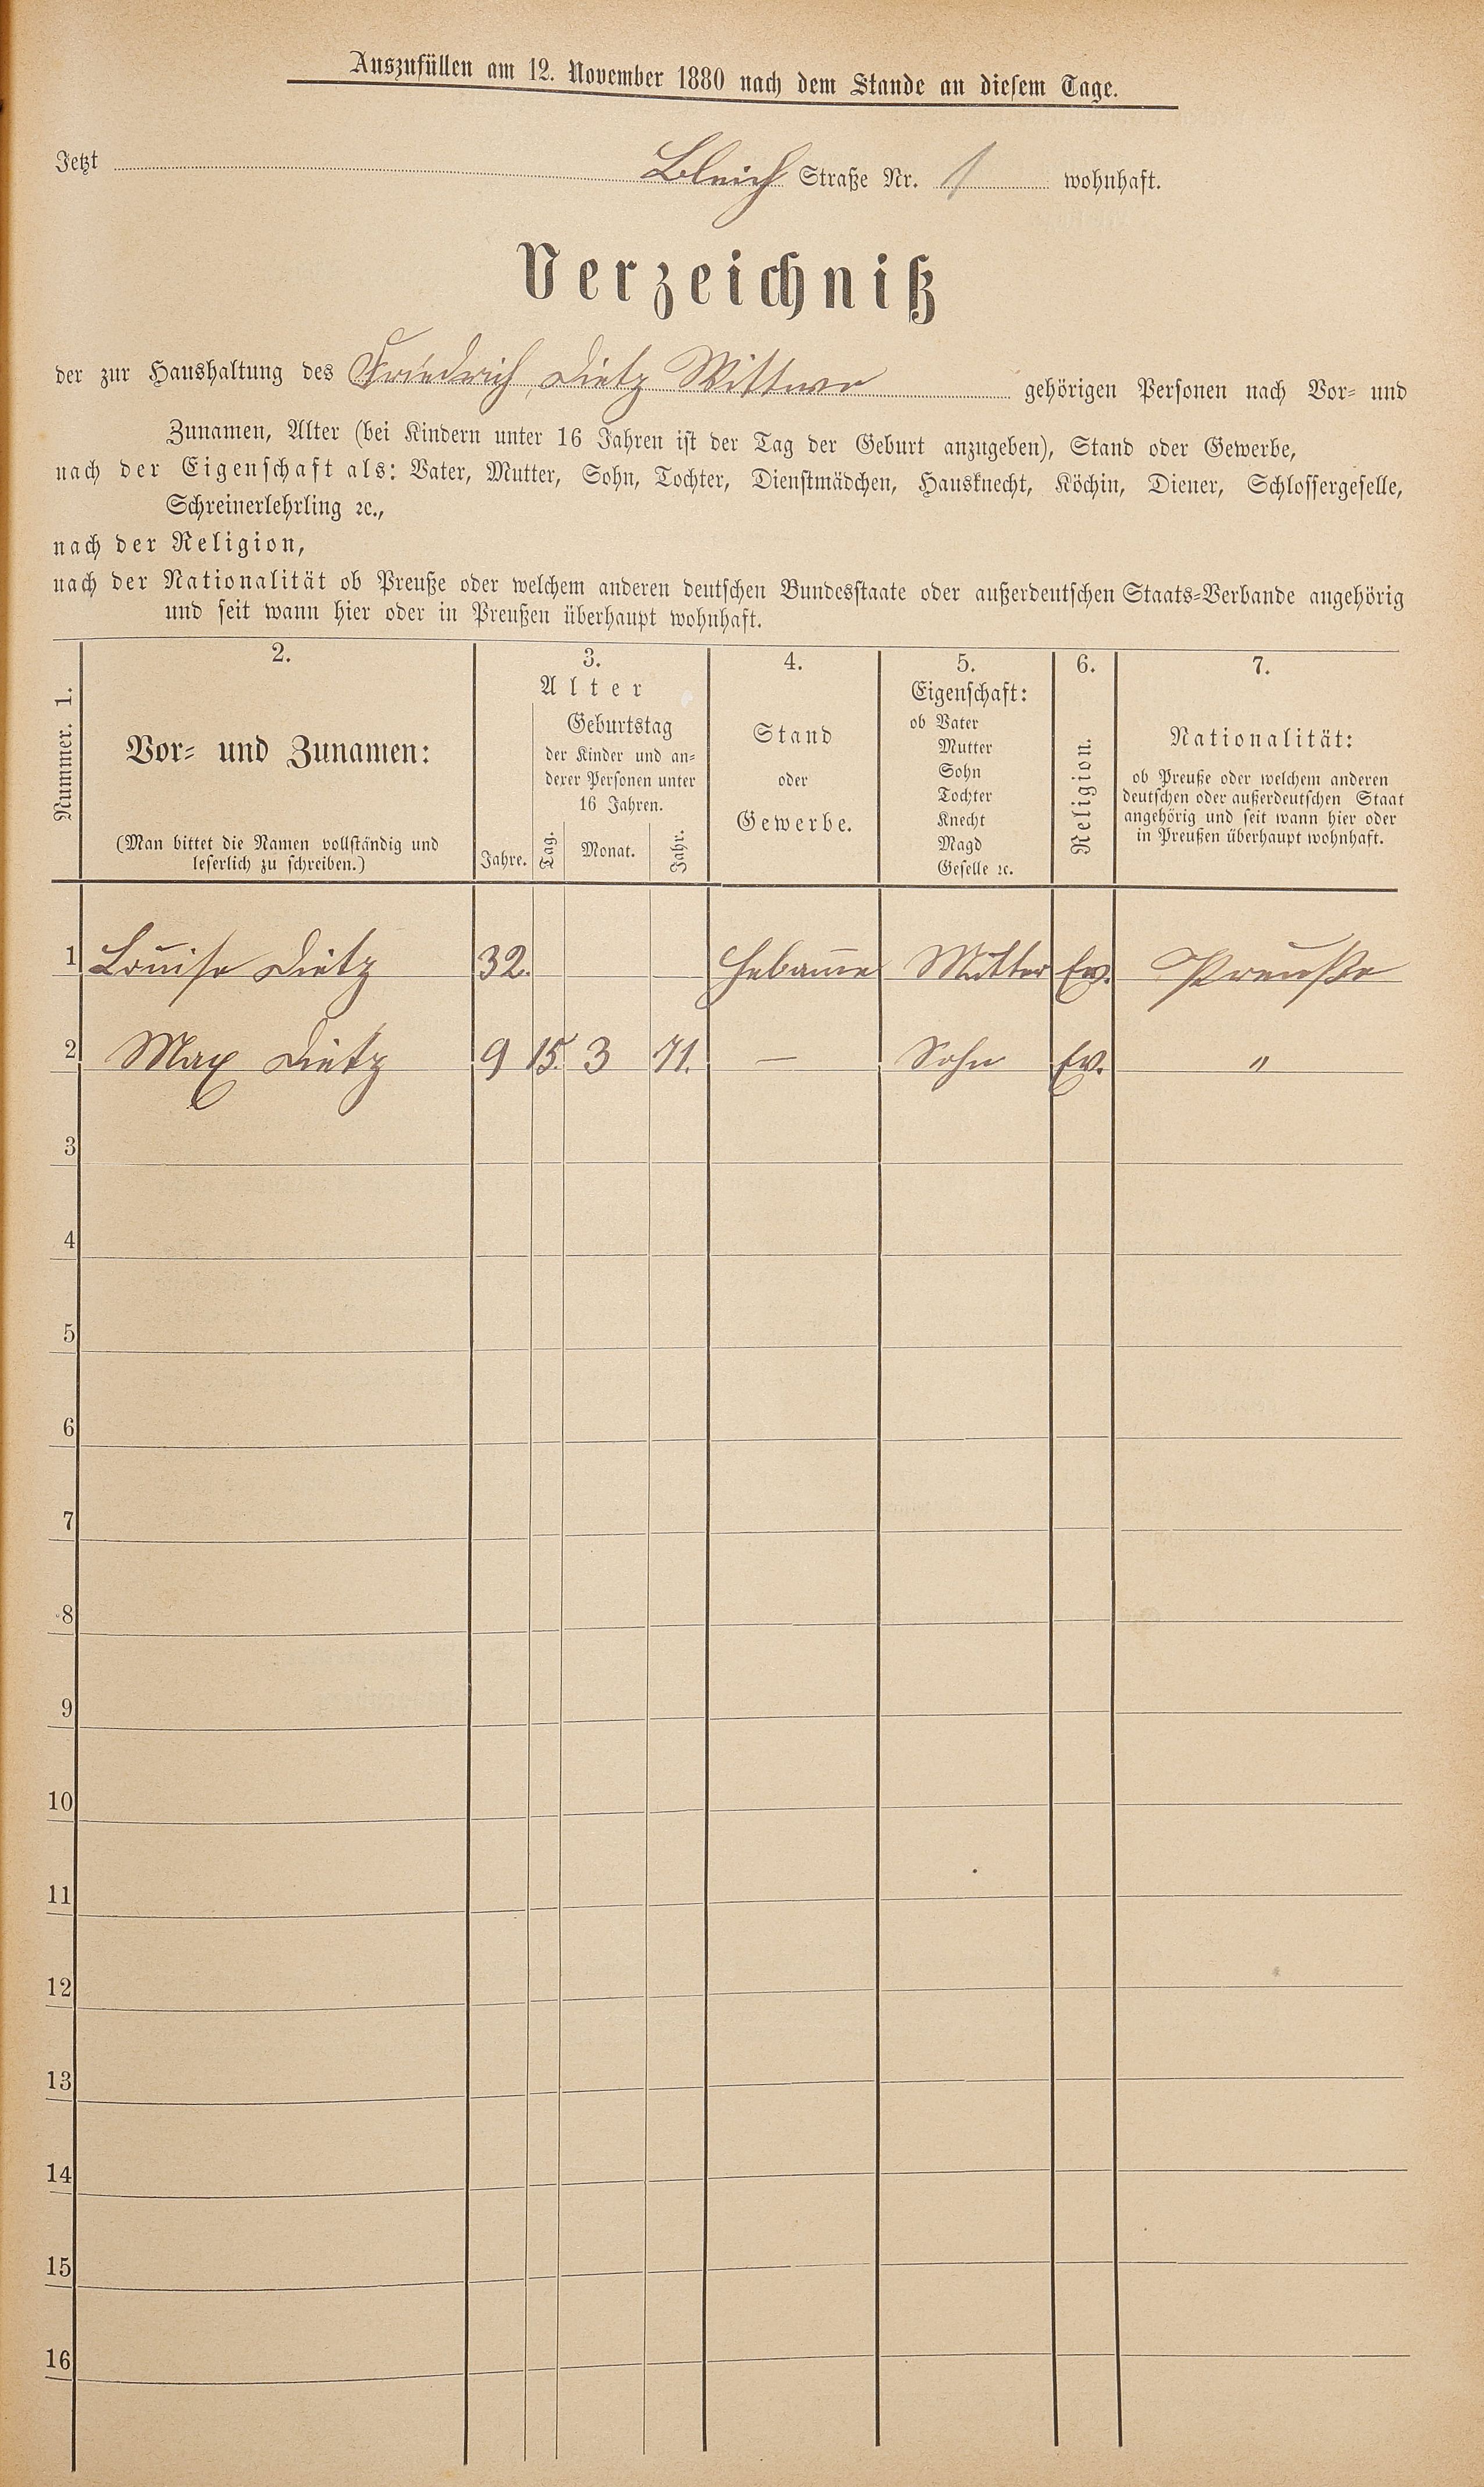 Auszufüllen am 12. November 1880 nach dem Stande an diesem Tage.
Jetzt Bleich Straße Nr. 1 wohnhaft.
Verzeichniß
der zur Haushaltung des Friedrich Dietz Wittwe gehörigen Personen nach Vor- und
Zunamen, Alter (bei Kindern unter 16 Jahren ist der Tag der Geburt anzugeben), Stand oder Gewerbe,
nach der Eigenschaft als: Vater, Mutter, Sohn, Tochter, Dienstmädchen, Hausknecht, Köchin, Diener, Schlossergeselle,
Schreinerlehrling ꝛc.,
nach der Religion,
nach der Nationalität ob Preuße oder welchem anderen deutschen Bundesstaate oder außerdeutschen Staats-Verbande angehörig
und seit wann hier oder in Preußen überhaupt wohnhaft.
Nummer. 1.
2.
Vor- und Zunamen:
(Man bittet die Namen vollständig und
leserlich zu schreiben.)
3.
Alter
Jahre.
Geburtstag
der Kinder und an-
derer Personen unter
16 Jahren.
Tag. Monat. Jahr.
4.
Stand
oder
Gewerbe.
5.
Eigenschaft:
ob Vater
Mutter
Sohn
Tochter
Knecht
Magd
Geselle ꝛc.
6.
Religion.
7.
Nationalität:
ob Preuße oder welchem anderen
deutschen oder außerdeutschen Staat
angehörig und seit wann hier oder
in Preußen überhaupt wohnhaft.
1 Louise Dietz 32. Hebam̅e Mutter Ev. Preuße
2 Max Dietz 9 15. 3 71. — Sohn Ev. "
3
4
5
6
7
8
9
10
11
12
13
14
15
16